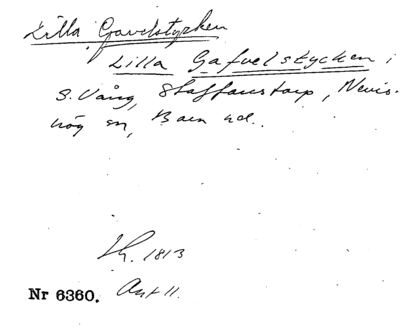 Lilla Gavelstycken
Lilla Gafvelstycken i
3. Vång, Staffanstorp, Nevis-
hög sn, Bara hd.
Lh. 1813
Nr 6360. Akt 11.